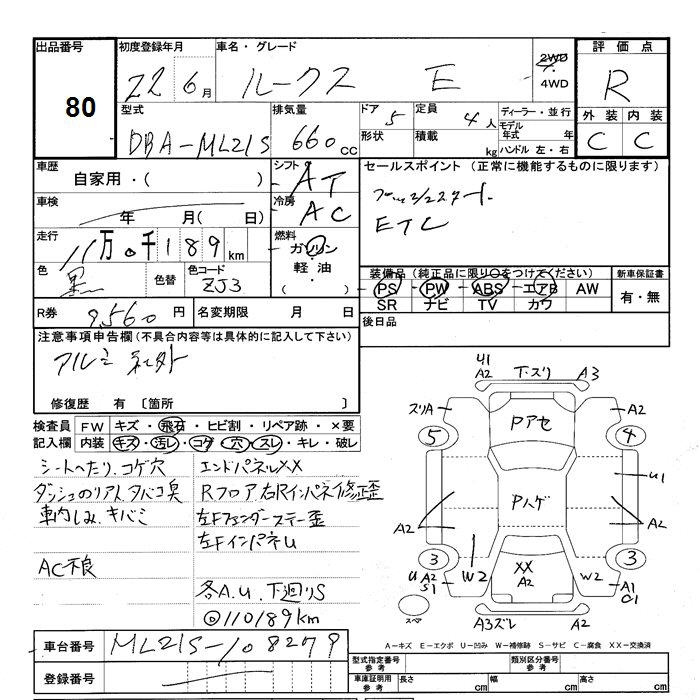 出品番号 80
初度登録年月 22 6月
車名・グレード ルークス E
2WD 4WD
評価点 R
外装 内装
C C
型式 DBA-ML21S
排気量 660cc
ドア 5 形状
定員 4人 積載 kg
ディーラー・並行
モデル年式 年
ハンドル 左・右
車歴 自家用・( )
シフト AT
セールスポイント(正常に機能するものに限ります)
ETC
車検 年 月(日)
冷房 AC
走行 11万0千189km
燃料 ガソリン 軽油・( )
色 黒 色替 色コード ZJ3
装備品(純正品に限り○をつけてください)
PS PW ABS エアB AW
SR ナビ TV カワ
新車保証書 有・無
R券 9,560円 名変期限 月 日
後日品
注意事項申告欄(不具合内容等は具体的に記入して下さい)
アルミ 社外
修復歴 有〔箇所 〕
検査員記入欄 FW キズ・飛石・ヒビ割・リペア跡・×要
内装 キズ・汚レ・コゲ・穴・スレ・キレ・破レ
シートへたり、コゲ穴
ダッシュのりアト、タバコ臭
車内しみ、キバミ
AC不良
エンドパネルXX
Rフロア、右Rインパネ修正歪
左Fフェンダーステー歪
左FインパネU
各A.U、下廻りS
◎110189km
U1 A2 下スリ A3
スリA Pアセ A2
5 4
U1
Pハゲ
A2 A2
3 3
U A2 S1 W2 XX A2 W2 A1 C1
スペア A3ズレ A2
A-キズ E-エクボ U-凹み W-補修跡 S-サビ C-腐食 XX-交換済
車台番号 ML21S-108279
登録番号
型式指定番号 参考 類別区分番号 参考
車庫証明用 参考 長さ cm 幅 cm 高さ cm